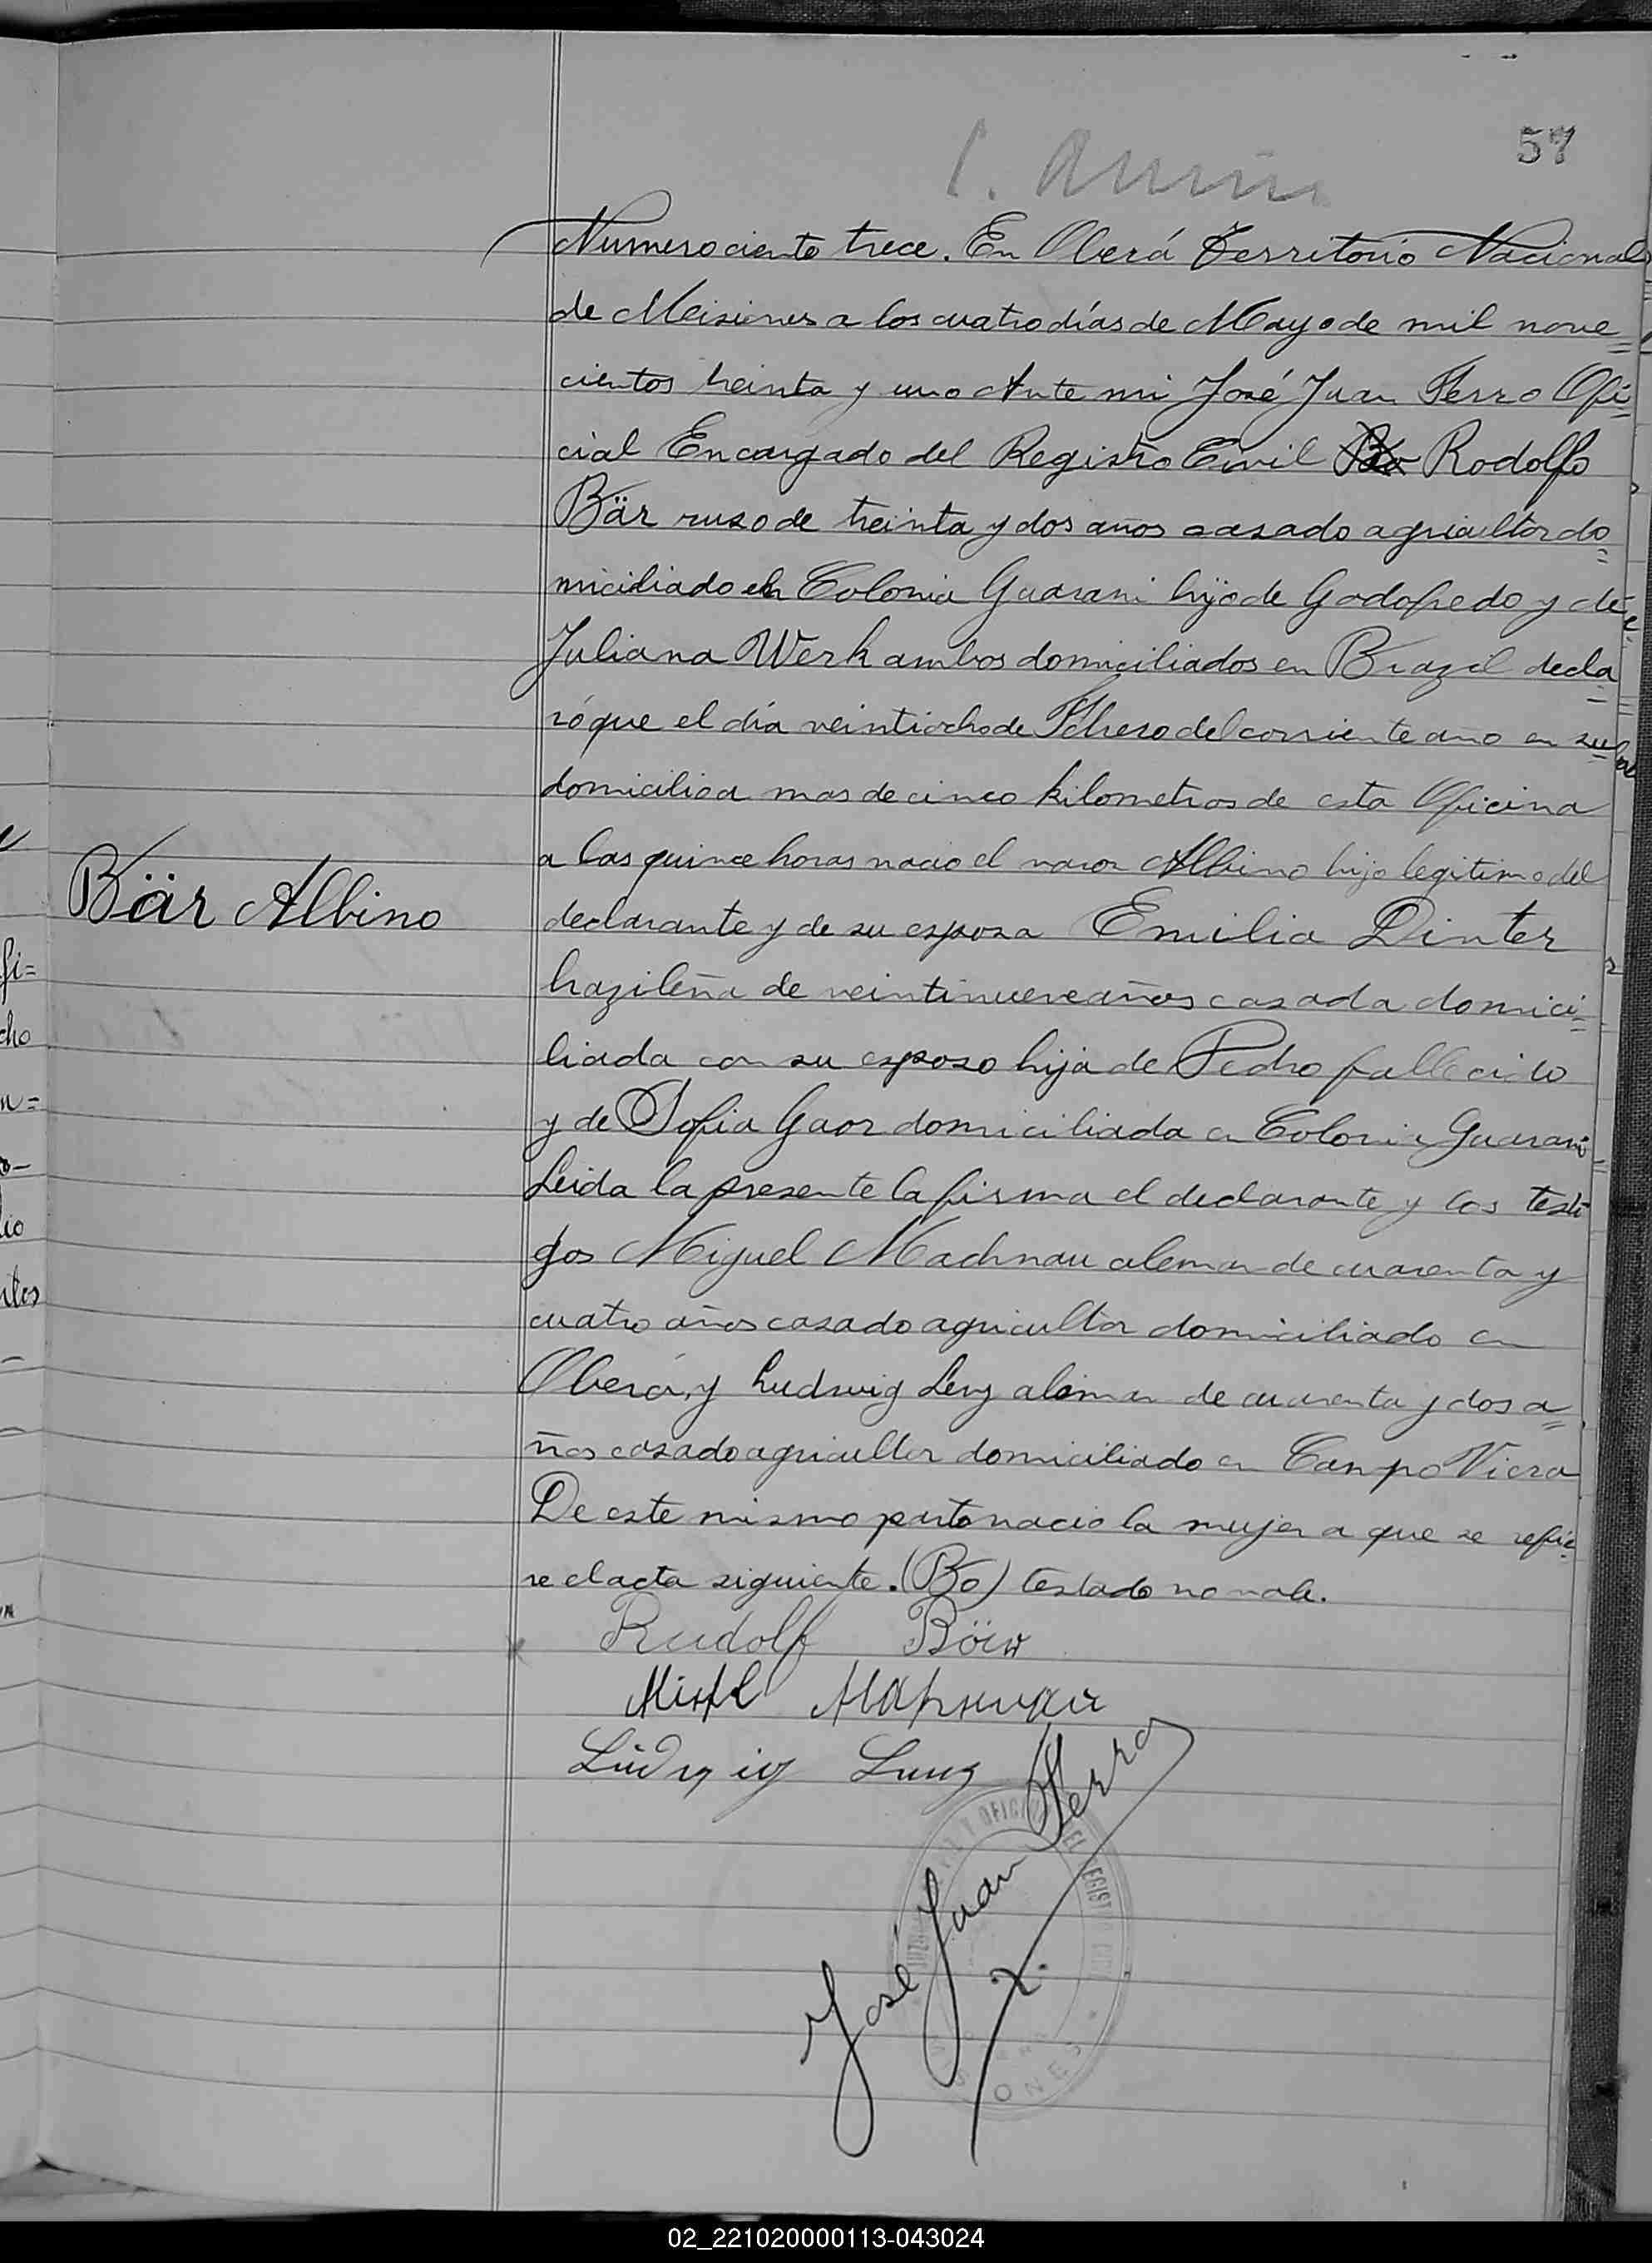 57
Numero ciento trece. En Oberá Territorio Nacional
de Misiones a los cuatro días de Mayo de mil nove=
cientos treinta y uno Ante mi José Juan Ferro Ofi=
cial Encargado del Registro Civil Bo Rodolfo
Bär ruso de treinta y dos años casado agricultor do=
miciliado en Colonia Guarani hijo de Godofredo y de
Juliana Werk ambos domiciliados en Brazil decla=
ró que el día veintiocho de Febrero del corriente año en su
domicilio a mas de cinco kilometros de esta Oficina
a las quince horas nacio el varon Albino hijo legitimo del
Bär Albino
declarante y de su esposa Emilia Dinter
brazileña de veintinueve años casada domici=
liada con su esposo hija de Pedro fallecido
y de Sofia Gaor domiciliada en Colonia Guarani
Leida la presente la firma el declarante y los testi
gos Miguel Machnau aleman de cuarenta y
cuatro años casado agricultor domiciliado en
Oberá, y Ludwig Leng aleman de cuarenta y dos a=
ños casado agricultor domiciliado en Campo Viera
De este mismo parto nacio la mujer a que se refie=
re el acta siguiente. (Bo) testado no vale.
Rudolf Bär
Ludwig
José Juan Ferro
OFICI EL REGIST
ONES
02_221020000113-043024